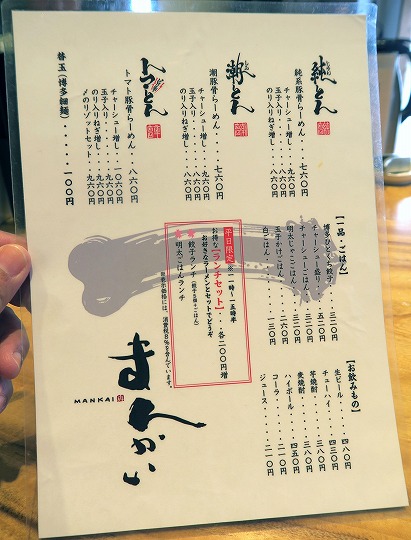 純とん
純系豚骨らーめん・・・七六〇円
チャーシュー増し・・・九六〇円
玉子入り・・・・・・八六〇円
のり入りねぎ増し・・・八六〇円
潮とん
潮豚骨らーめん・・・七六〇円
チャーシュー増し・・・九六〇円
玉子入り・・・・・・八六〇円
のり入りねぎ増し・・・八六〇円
トマとん
トマト豚骨らーめん・・・八六〇円
チャーシュー増し・・・一〇六〇円
玉子入り・・・・・・九六〇円
のり入りねぎ増し・・・九六〇円
〆のリゾットセット・・・九六〇円
替玉（博多細麺）・・・・・一〇〇円
【一品・ごはん】
博多ひとくち餃子・・・三二〇円
チャーシュー盛り・・・五二〇円
チャーシューごはん・・・三二〇円
明太じゃこごはん・・・三二〇円
玉子かけごはん・・・二六〇円
白ごはん・・・・・一三〇円
平日限定 ※一一時〜一五時半
お得な【ランチセット】・・各二〇〇円増
お好きなラーメンとセットでどうぞ
★餃子ランチ（餃子5個＋ごはん）
★明太ごはんランチ
※表示価格には、消費税8％を含んでいます。
【お飲みもの】
生ビール・・・・四八〇円
チューハイ・・・四三〇円
芋焼酎・・・・・三八〇円
麦焼酎・・・・・三八〇円
ハイボール・・・四五〇円
コーラ・・・・・二一〇円
ジュース・・・・二一〇円
まんかい
MANKAI